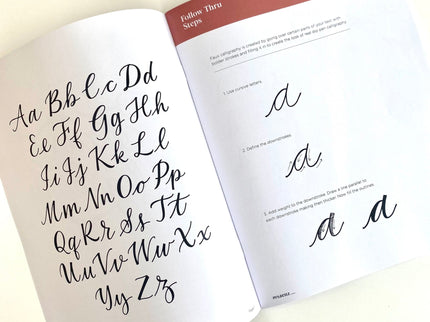 Aa Bb Cc Dd
Ee Ff Gg Hh
Ii Jj Kk Ll
Mm Nn Oo Pp
Qq Rr Ss Tt
Uu Vv Ww Xx
Yy Zz
Follow Thru
Steps
Faux calligraphy is created by going over certain parts of your text with
bolder strokes and filling it in to create the look of real dip pen calligraphy.
1. Use cursive letters.
a
2. Define the downstrokes.
a
3. Add weight to the downstroke. Draw a line parallel to
each downstroke making them thicker. Now fill the outlines.
a a